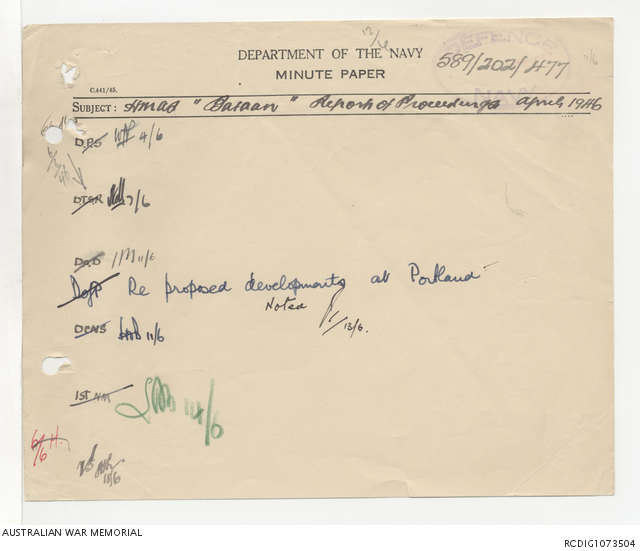 12/6
DEPARTMENT OF THE NAVY
MINUTE PAPER
DEFENCE
NAVY
589/202/477
C.441/45.
SUBJECT: HMAS "Bataan" Report of Proceedings April 1946
D.P.S 4/6
7/6
D.O.D 11/6
DofP Re proposed developments at Portland
Noted
13/6.
DCNS 11/6
1ST NM
6/6 H.
AUSTRALIAN WAR MEMORIAL
RCDIG1073504